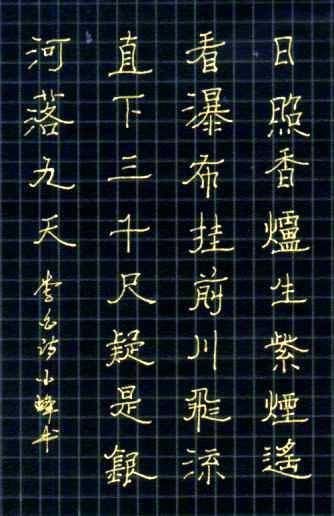 日照香爐生紫煙遙
看瀑布挂前川飛流
直下三千尺疑是銀
河落九天
李白詩小蜂书